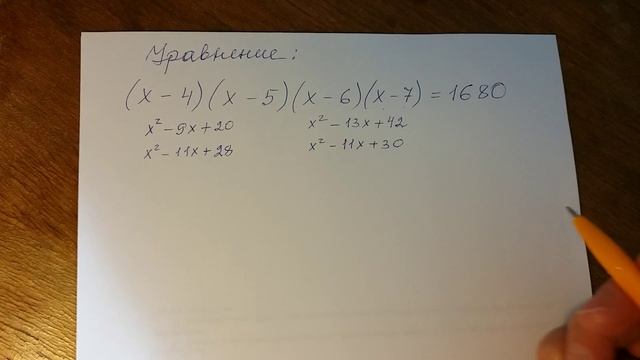 Уравнение:
(x - 4)(x - 5)(x - 6)(x - 7) = 1680
x² - 9x + 20 x² - 13x + 42
x² - 11x + 28 x² - 11x + 30